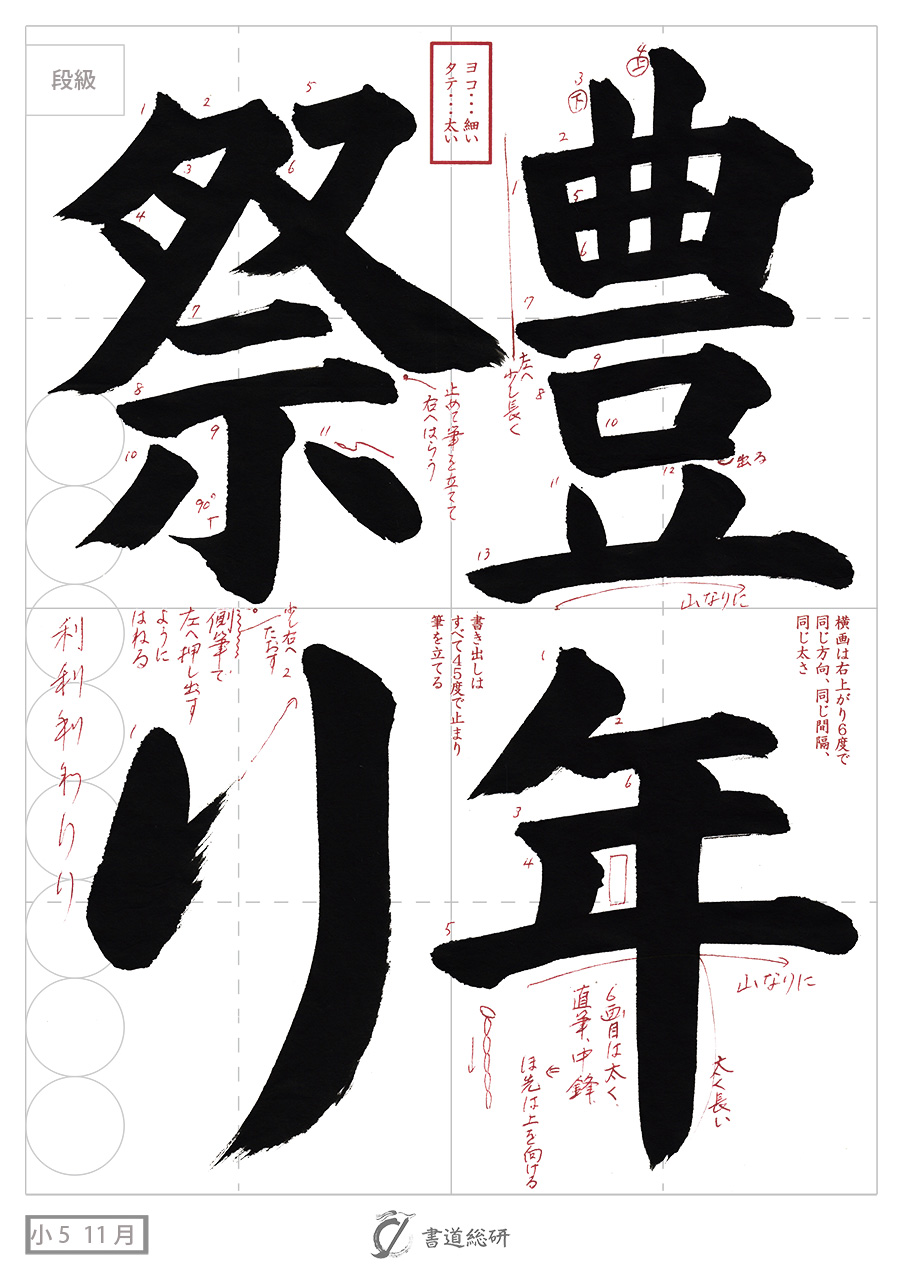 豊年
祭り
段級
ヨコ・・・細い
タテ・・・太い
下
上
左へ少し長く
出る
山なりに
横画は右上がり6度で
同じ方向、同じ間隔、
同じ太さ
止めて筆を立てて
右へはらう
90°
書き出しは
すべて45度で止まり
筆を立てる
少し右へ
たおす
側筆で
左へ押し出す
ように
はねる
利利利わりり
山なりに
太く長い
6画目は太く
直筆、中鋒
ほ先は上を向ける
小5 11月
書道総研